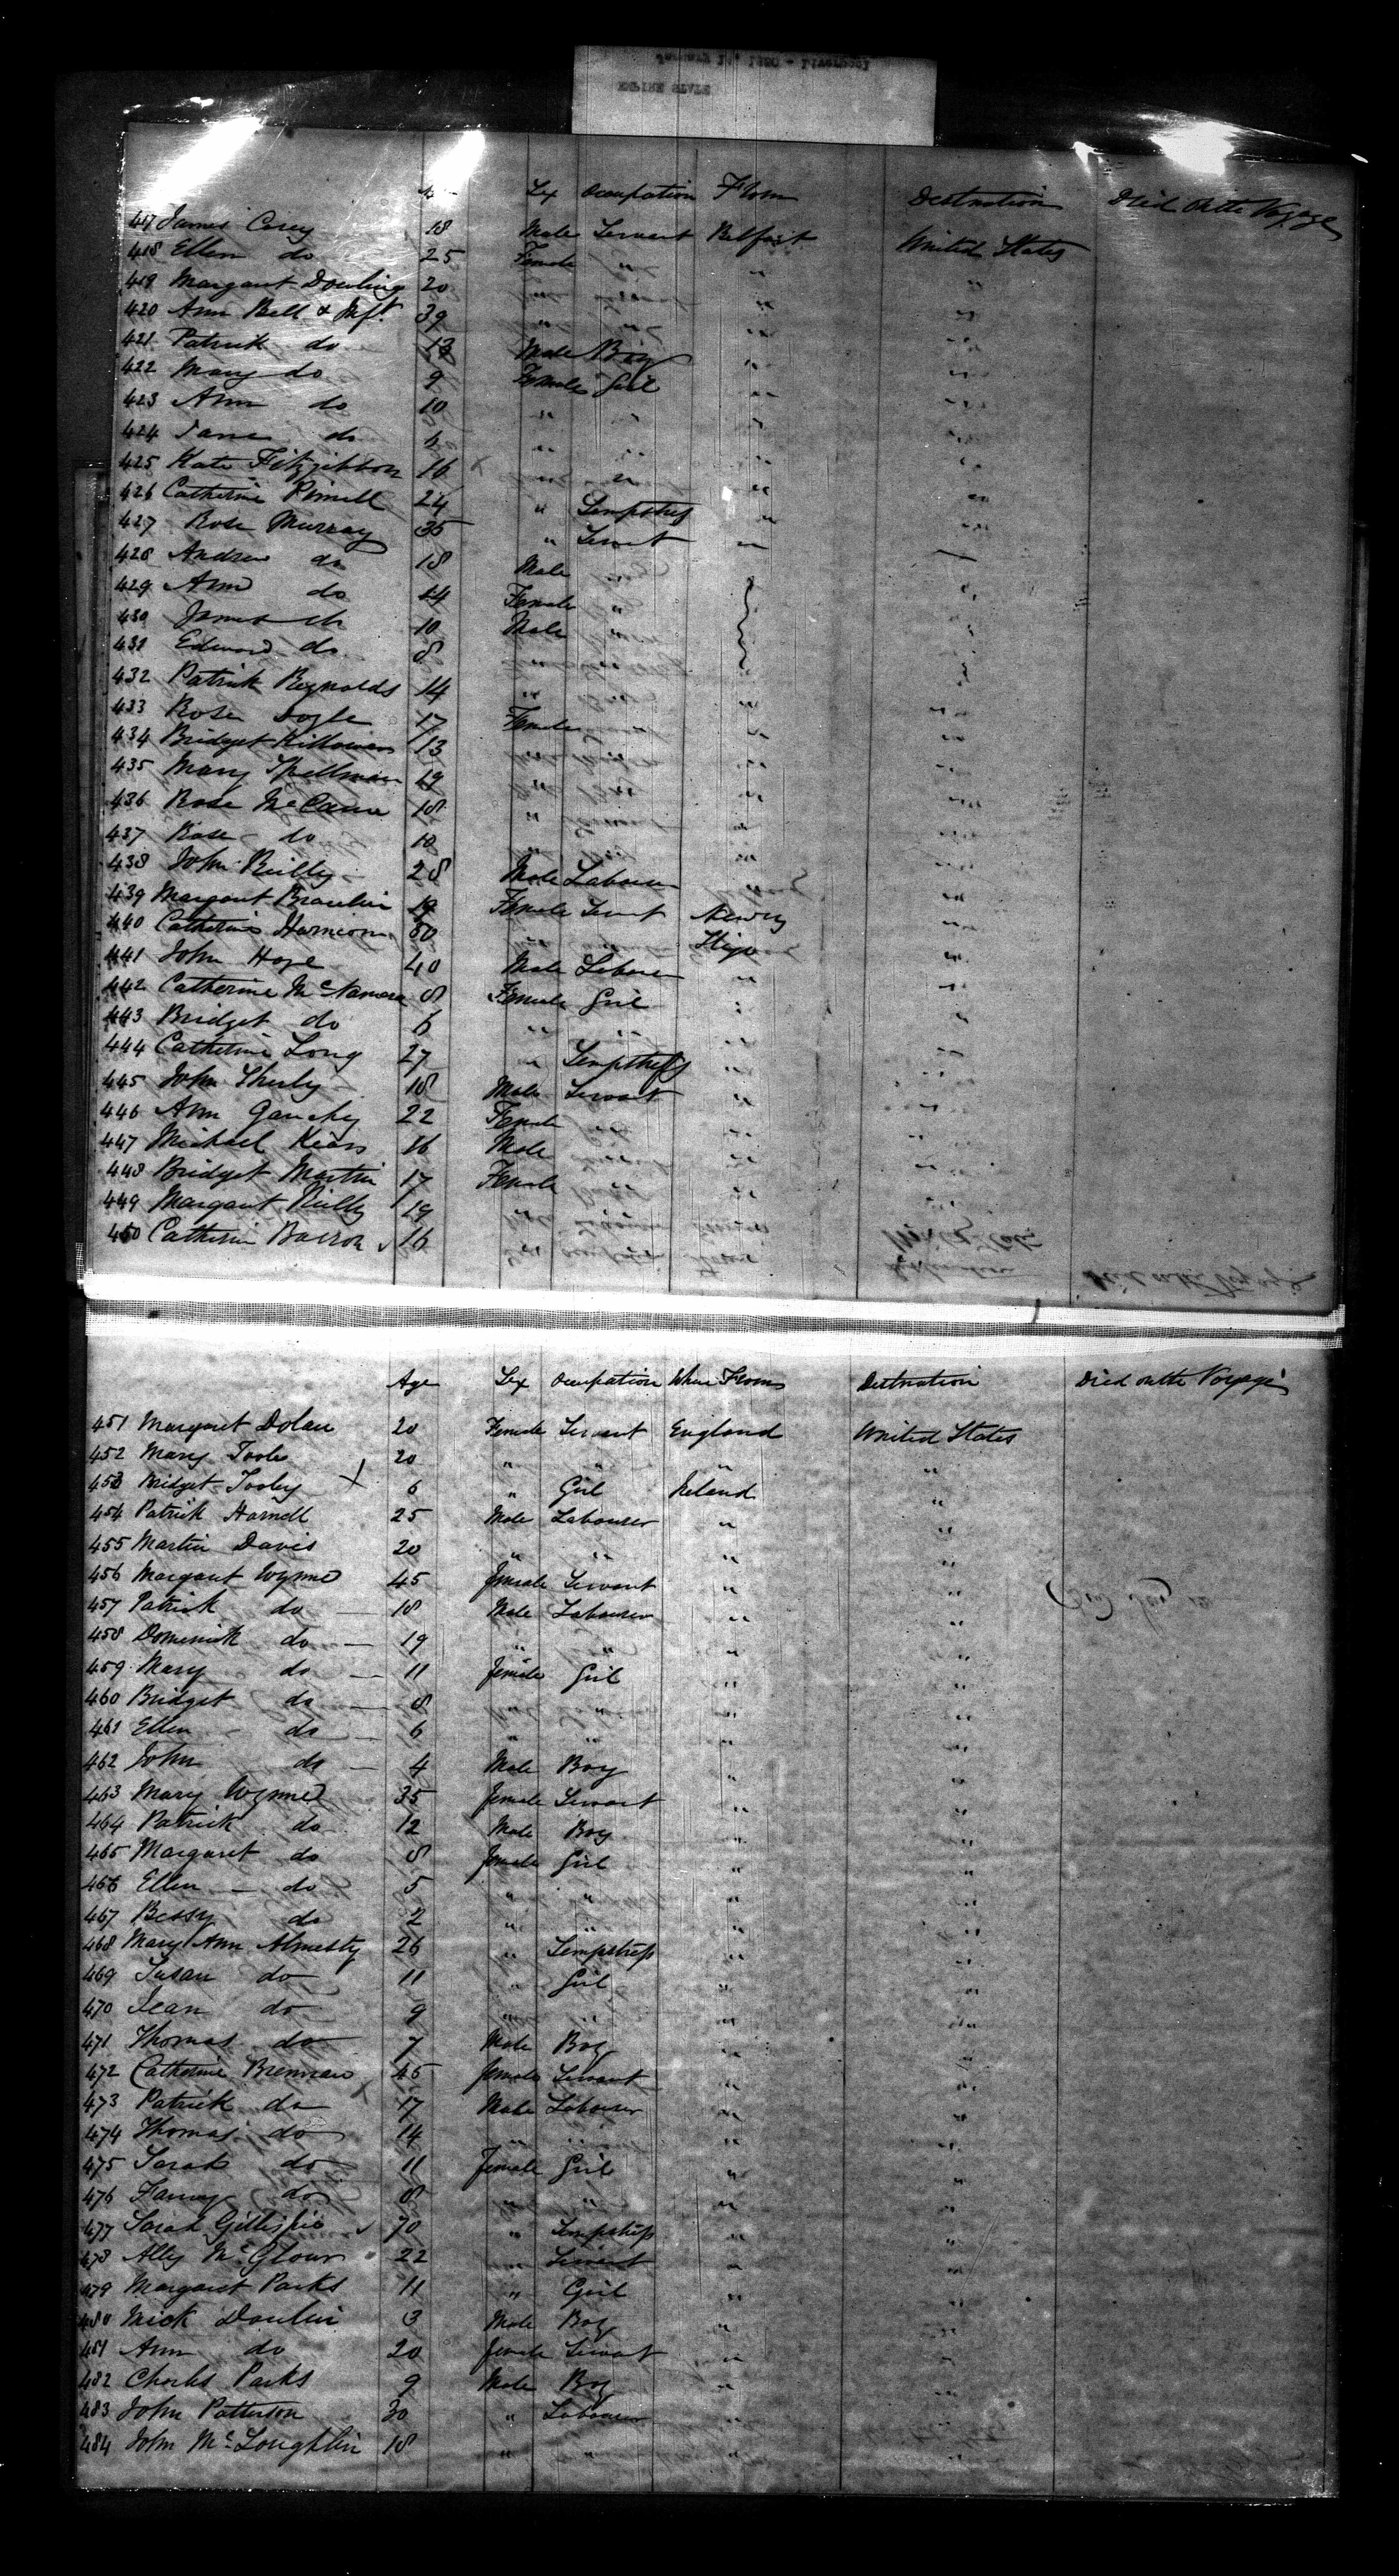 Sex Occupation From Destination Died on the Voyage
417 James Carey 18 Male Servant Belfast United States
418 Ellen do 25 Female " " "
419 Margaret Dowling 20 " "
420 Ann Bell & Inft. 39 " "
421 Patrick do 13 Male Boy " "
422 Mary do 9 Female Girl " "
423 Ann do 10 " " " "
424 Jane do 6 " " " "
425 Kate Fitzgibbon 16 " " "
426 Catherine 24 " Sempstress " "
427 Rose Murray 35 " Servant " "
428 Andrew do 18 Male
429 Ann do 14 Female " "
430 James do 10 Male "
431 Edward do 8
432 Patrick Reynolds 14 " " "
433 Rose Doyle 17 Female " "
434 Bridget 13 " "
435 Mary Spellman 19 " "
436 Rose McCann 18 " " "
437 Rose do 10 " "
438 John Reilly 28 Male Labourer "
439 Margaret 19 Female Servant Newry "
440 Catherine Sligo "
441 John Hope 40 Male Labourer " "
442 Catherine McNamara 8 Female Girl " "
443 Bridget do 6 " " " "
444 Catherine Long 27 " Sempstress " "
445 John 18 Male Servant " "
446 Ann 22 Female " "
447 Michael 16 Male " "
448 Bridget Martin 17 Female " "
449 Margaret Reilly 19
450 Catherine Barron 16
Age Sex Occupation Where From Destination Died on the Voyage
451 Margaret Dolan 20 Female Servant England United States
452 Mary Toole 20 " " " "
453 Bridget Tooley 6 " Girl Ireland "
454 Patrick 25 Male Labourer " "
455 Martin Davis 20 " " " "
456 Margaret Wynne 45 female Servant " "
457 Patrick do 18 Male Labourer " "
458 Dominick do 19 " " " "
459 Mary do 11 female Girl " "
460 Bridget do 8 " "
461 Ellen do 6 " " " "
462 John do 4 Male Boy " "
463 Mary Wynne 35 female Servant " "
464 Patrick do 12 Male Boy " "
465 Margaret do 8 female Girl " "
466 Ellen do 5 " " " "
467 Bessy do 2 " " " "
468 Mary Ann 26 " Sempstress " "
469 Susan do 11 " Girl " "
470 Jean do 9 " " "
471 Thomas do 7 Male Boy " "
472 Catherine Brennan 45 female Servant " "
473 Patrick do 17 Male Labourer " "
474 Thomas do 14 " " " "
475 Sarah do 11 female Girl " "
476 Fanny do 8 " " " "
477 Sarah Gillispie 70 " Sempstress " "
478 Ally McGlour 22 " Servant " "
479 Margaret Parks 11 " Girl " "
480 Mick 3 Male Boy " "
481 Ann do 20 female Servant " "
482 Charles Parks 9 Male Boy " "
483 John Patterson 30 " Labourer "
484 John McLoughlin 18 " " "